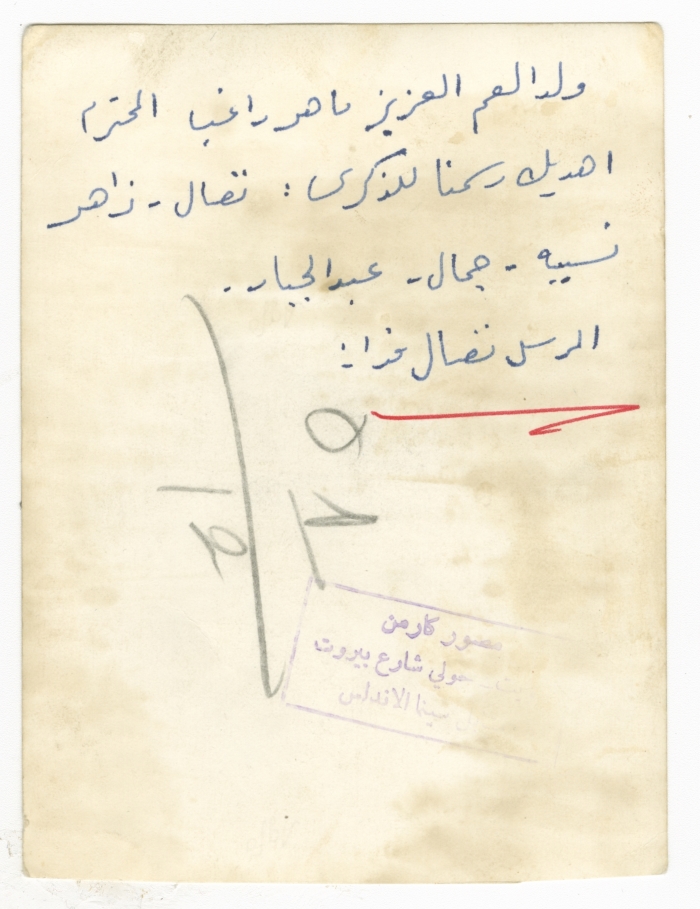 ولد العم العزيز ماهر راغب المحترم
اهديك رسمنا للذكرى : نضال - زاهر
نسيبه - جمال - عبدالجبار ..
المرسل نضال
مصور كارمن
حولي شارع بيروت
سينما الاندلس